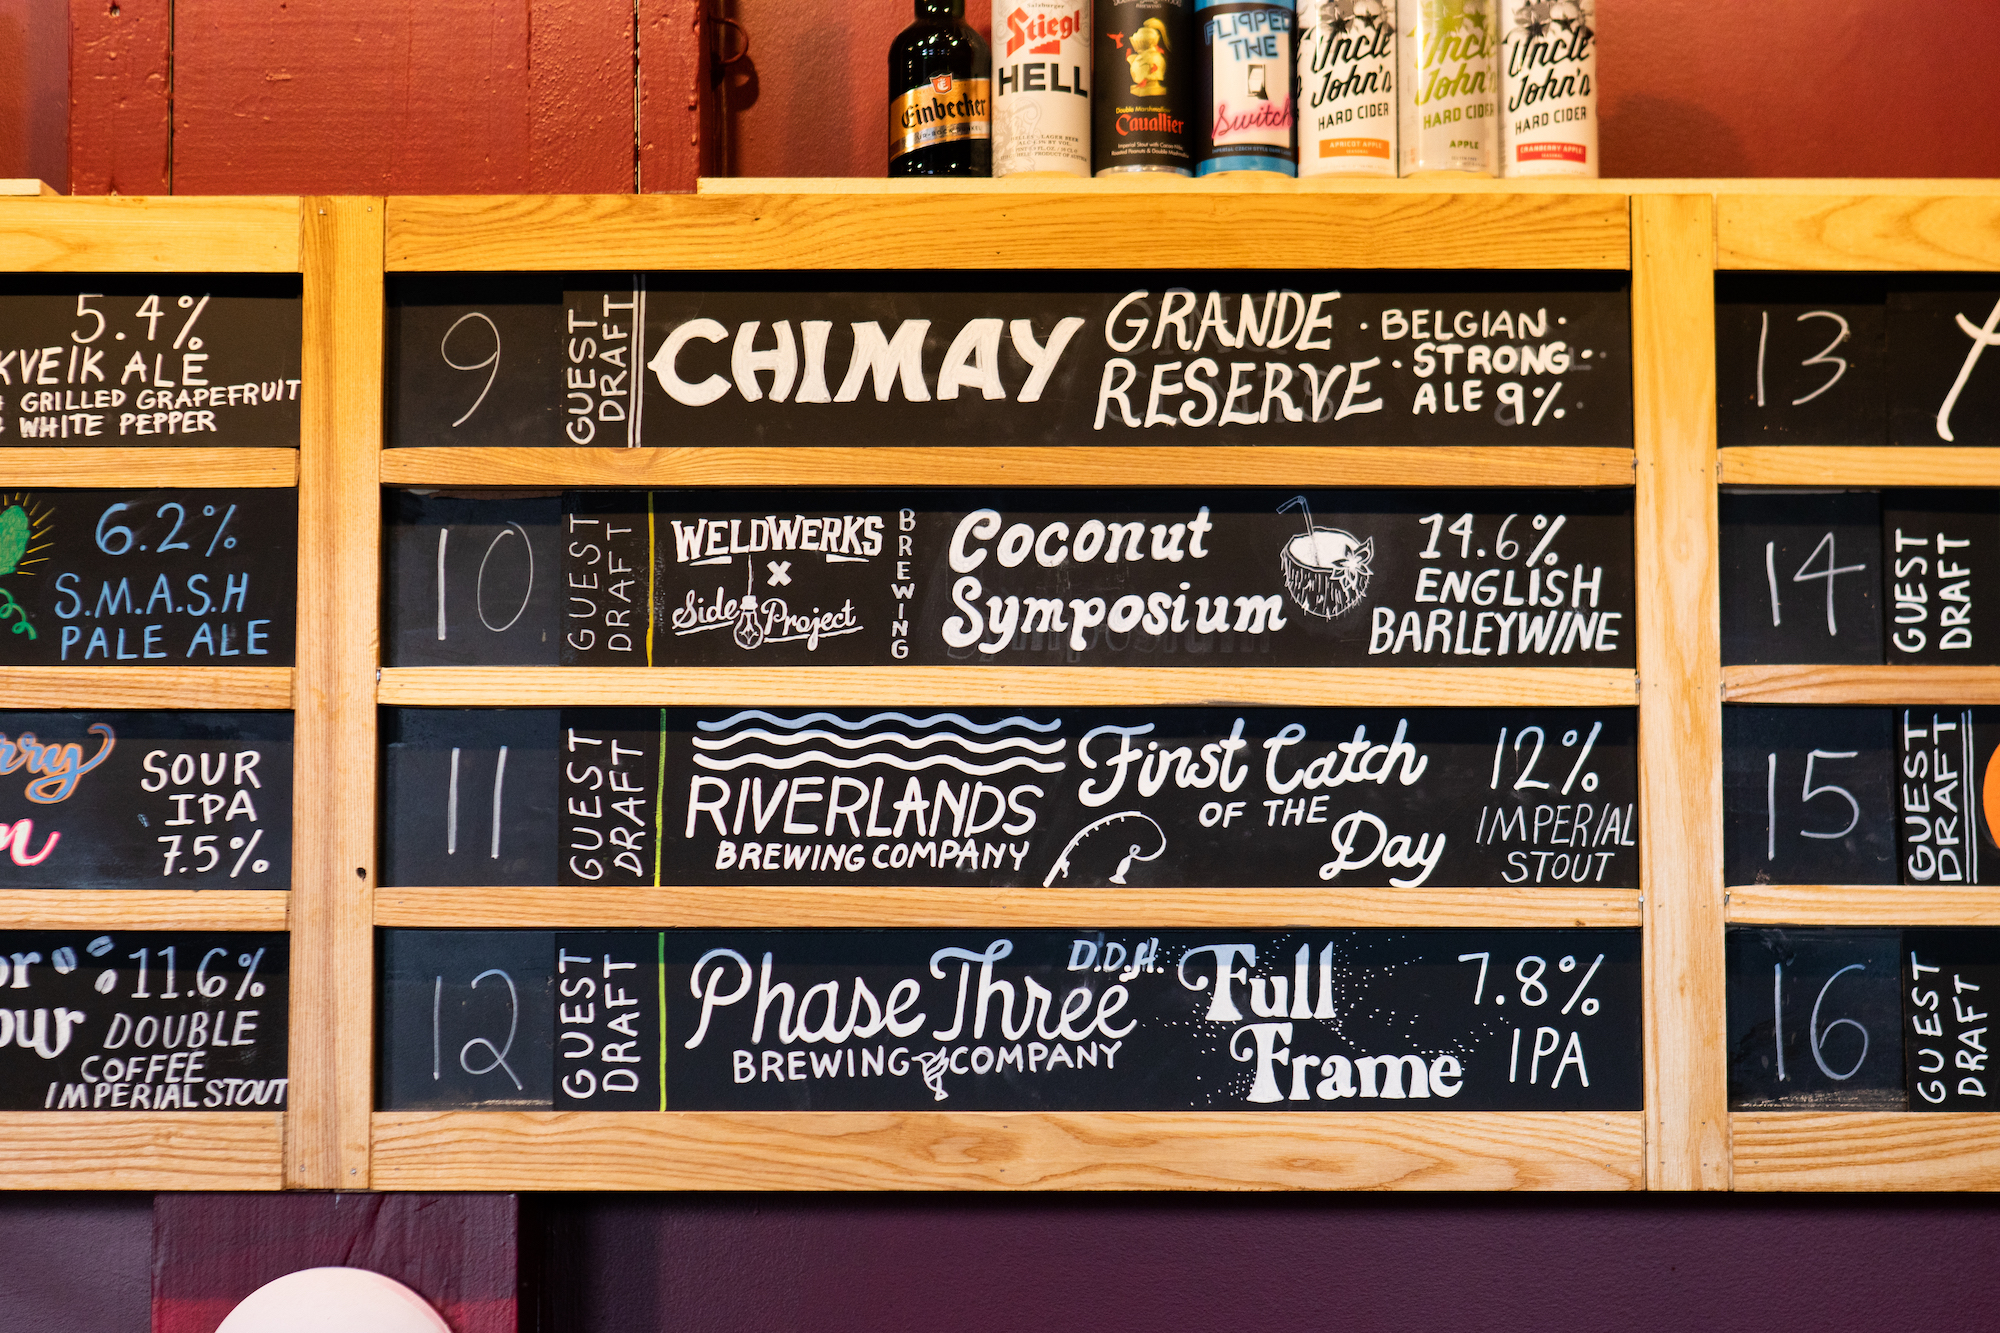 Einbecker
Stiegl
HELL
Double Marshmallow
Cauallier
Imperial Stout with Cacao Nibs
Roasted Peanuts & Double Marshmallow
FLIPPED
THE
Switch
Uncle
John's
HARD CIDER
APRICOT APPLE
Uncle
John's
HARD CIDER
APPLE
Uncle
John's
HARD CIDER
CRANBERRY APPLE
5.4%
KVEIK ALE
GRILLED GRAPEFRUIT
WHITE PEPPER
6.2%
S.M.A.S.H
PALE ALE
SOUR
IPA
7.5%
11.6%
DOUBLE
COFFEE
IMPERIAL STOUT
9
GUEST
DRAFT
CHIMAY
GRANDE
RESERVE
· BELGIAN ·
· STRONG ·
ALE 9%
10
GUEST
DRAFT
WELDWERKS
X
Side Project
BREWING
Coconut
Symposium
14.6%
ENGLISH
BARLEYWINE
11
GUEST
DRAFT
RIVERLANDS
BREWING COMPANY
First Catch
OF THE
Day
12%
IMPERIAL
STOUT
12
GUEST
DRAFT
Phase Three
BREWING COMPANY
D.D.H.
Full
Frame
7.8%
IPA
13
14
GUEST
DRAFT
15
GUEST
DRAFT
16
GUEST
DRAFT